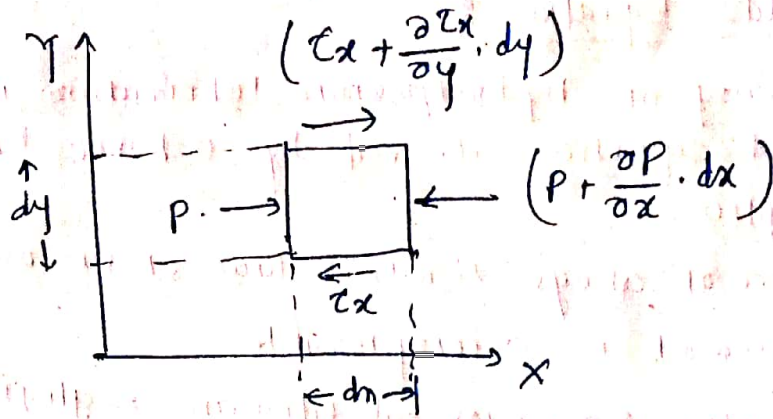 Y
(τx + ∂τx/∂y · dy)
dy
P.
(P + ∂P/∂x · dx)
τx
X
dn